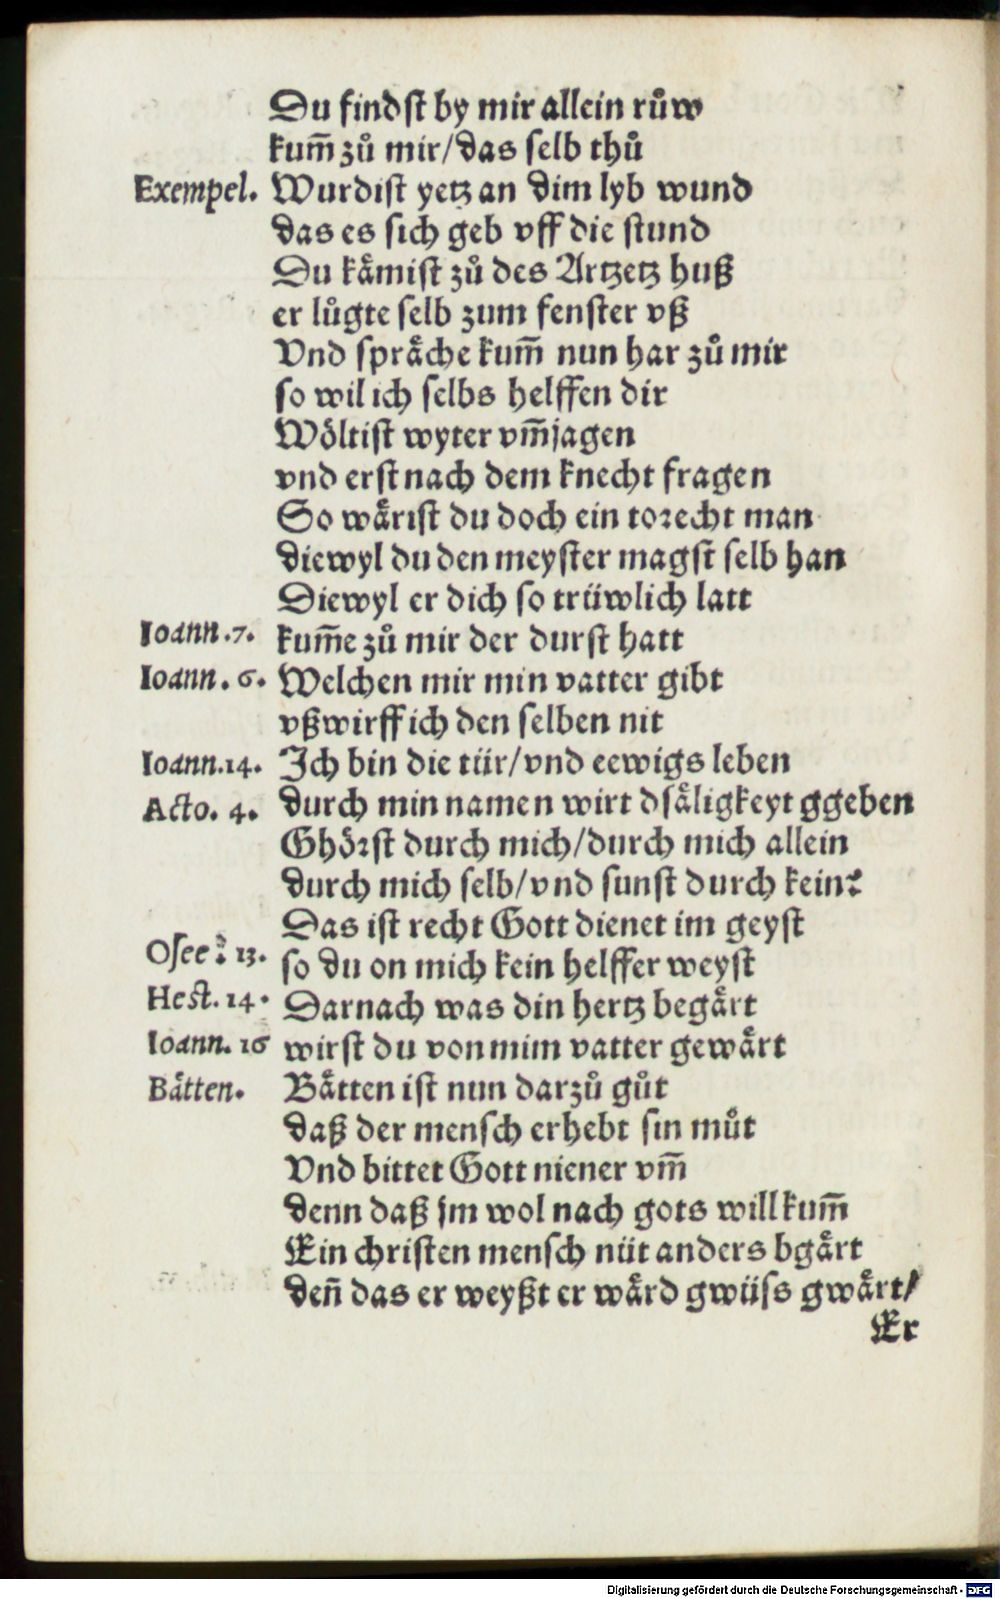 Du findst by mir allein růw
kum̃ zů mir/das selb thů
Exempel. Wurdist yetz an dim lyb wund
das es sich geb vff die stund
Du kaͤmist zů des Artzetz huß
er lůgte selb zum fenster vß
Vnd spraͤche kum̃ nun har zů mir
so wil ich selbs helffen dir
Woͤltist wyter vm̃jagen
vnd erst nach dem knecht fragen
So waͤrist du doch ein torecht man
diewyl du den meyster magst selb han
Diewyl er dich so trüwlich latt
Ioann.7. kum̃e zů mir der durst hatt
Ioann. 6. Welchen mir min vatter gibt
vßwirff ich den selben nit
Ioann.14. Ich bin die tür/vnd eewigs leben
Acto. 4. durch min namen wirt dsaͤligkeyt ggeben
Ghoͤrst durch mich/durch mich allein
durch mich selb/vnd sunst durch kein:
Das ist recht Gott dienet im geyst
Osee. 13. so du on mich kein helffer weyst
Hest. 14. Darnach was din hertz begaͤrt
Ioann. 16 wirst du von mim vatter gewaͤrt
Baͤtten. Baͤtten ist nun darzů gůt
daß der mensch erhebt sin můt
Vnd bittet Gott niener vm̃
denn daß jm wol nach gots will kum̃
Ein christen mensch nüt anders bgaͤrt
den̄ das er weyßt er waͤrd gwüss gwaͤrt/
Er
Digitalisierung gefördert durch die Deutsche Forschungsgemeinschaft - DFG